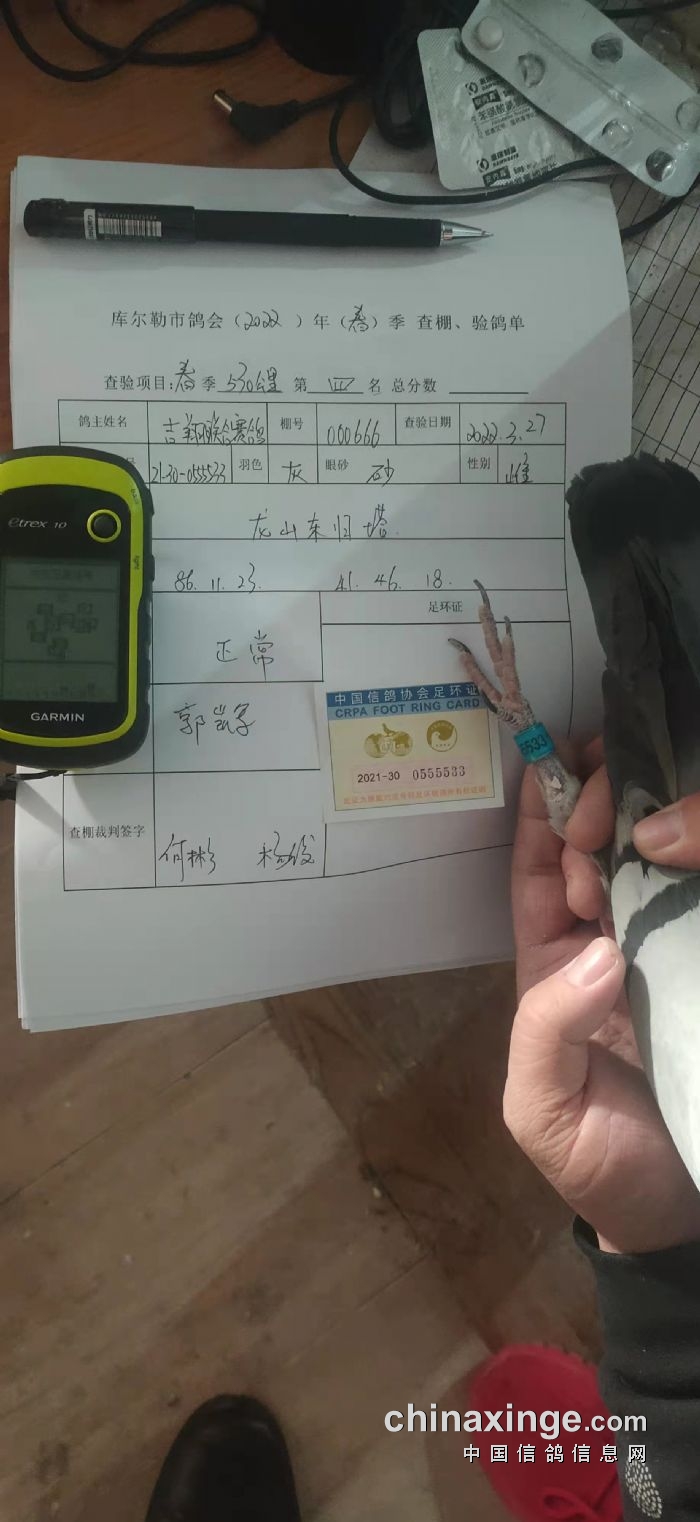 库尔勒市鸽会（2022）年（春）季 查棚、验鸽单
查验项目：春季 530公里 第 四 名 总分数
鸽主姓名 吉翔联合赛鸽 棚号 000666 查验日期 2022.3.27
号 21-30-0555533 羽色 灰 眼砂 砂 性别 雌
龙山东归塔.
86. 11. 23. 41. 46. 18.
足环证
正常
中国信鸽协会足环证
CRPA FOOT RING CARD
2021-30 0555533
5533
查棚裁判签字
何彬
etrex 10
GARMIN
chinaxinge.com
中国信鸽信息网